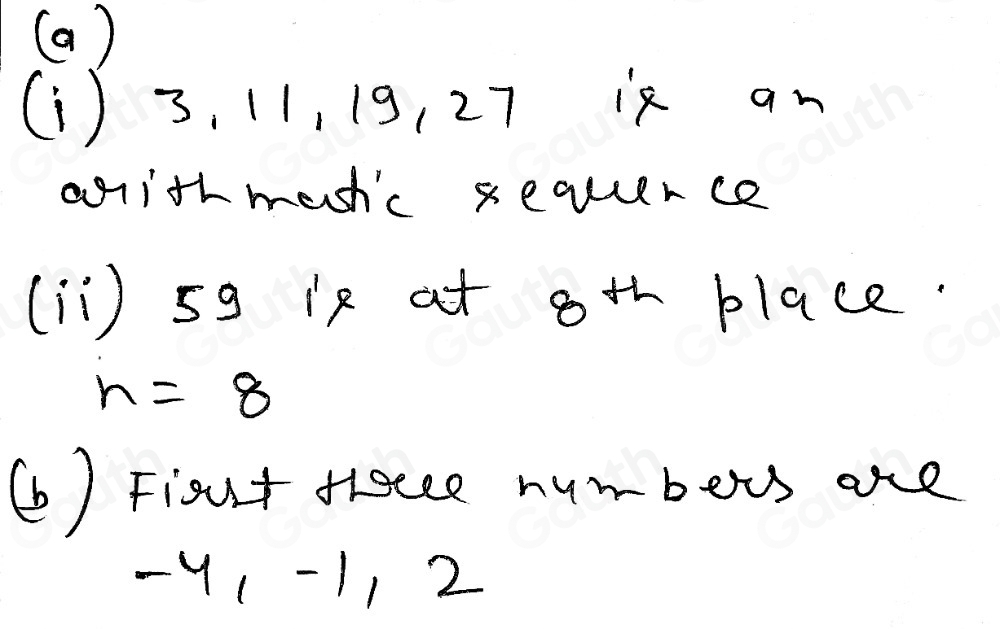 (a)
(i) 3, 11, 19, 27 is an
arithmetic sequence
(ii) 59 is at 8th place.
n = 8
(b) First three numbers are
-4, -1, 2